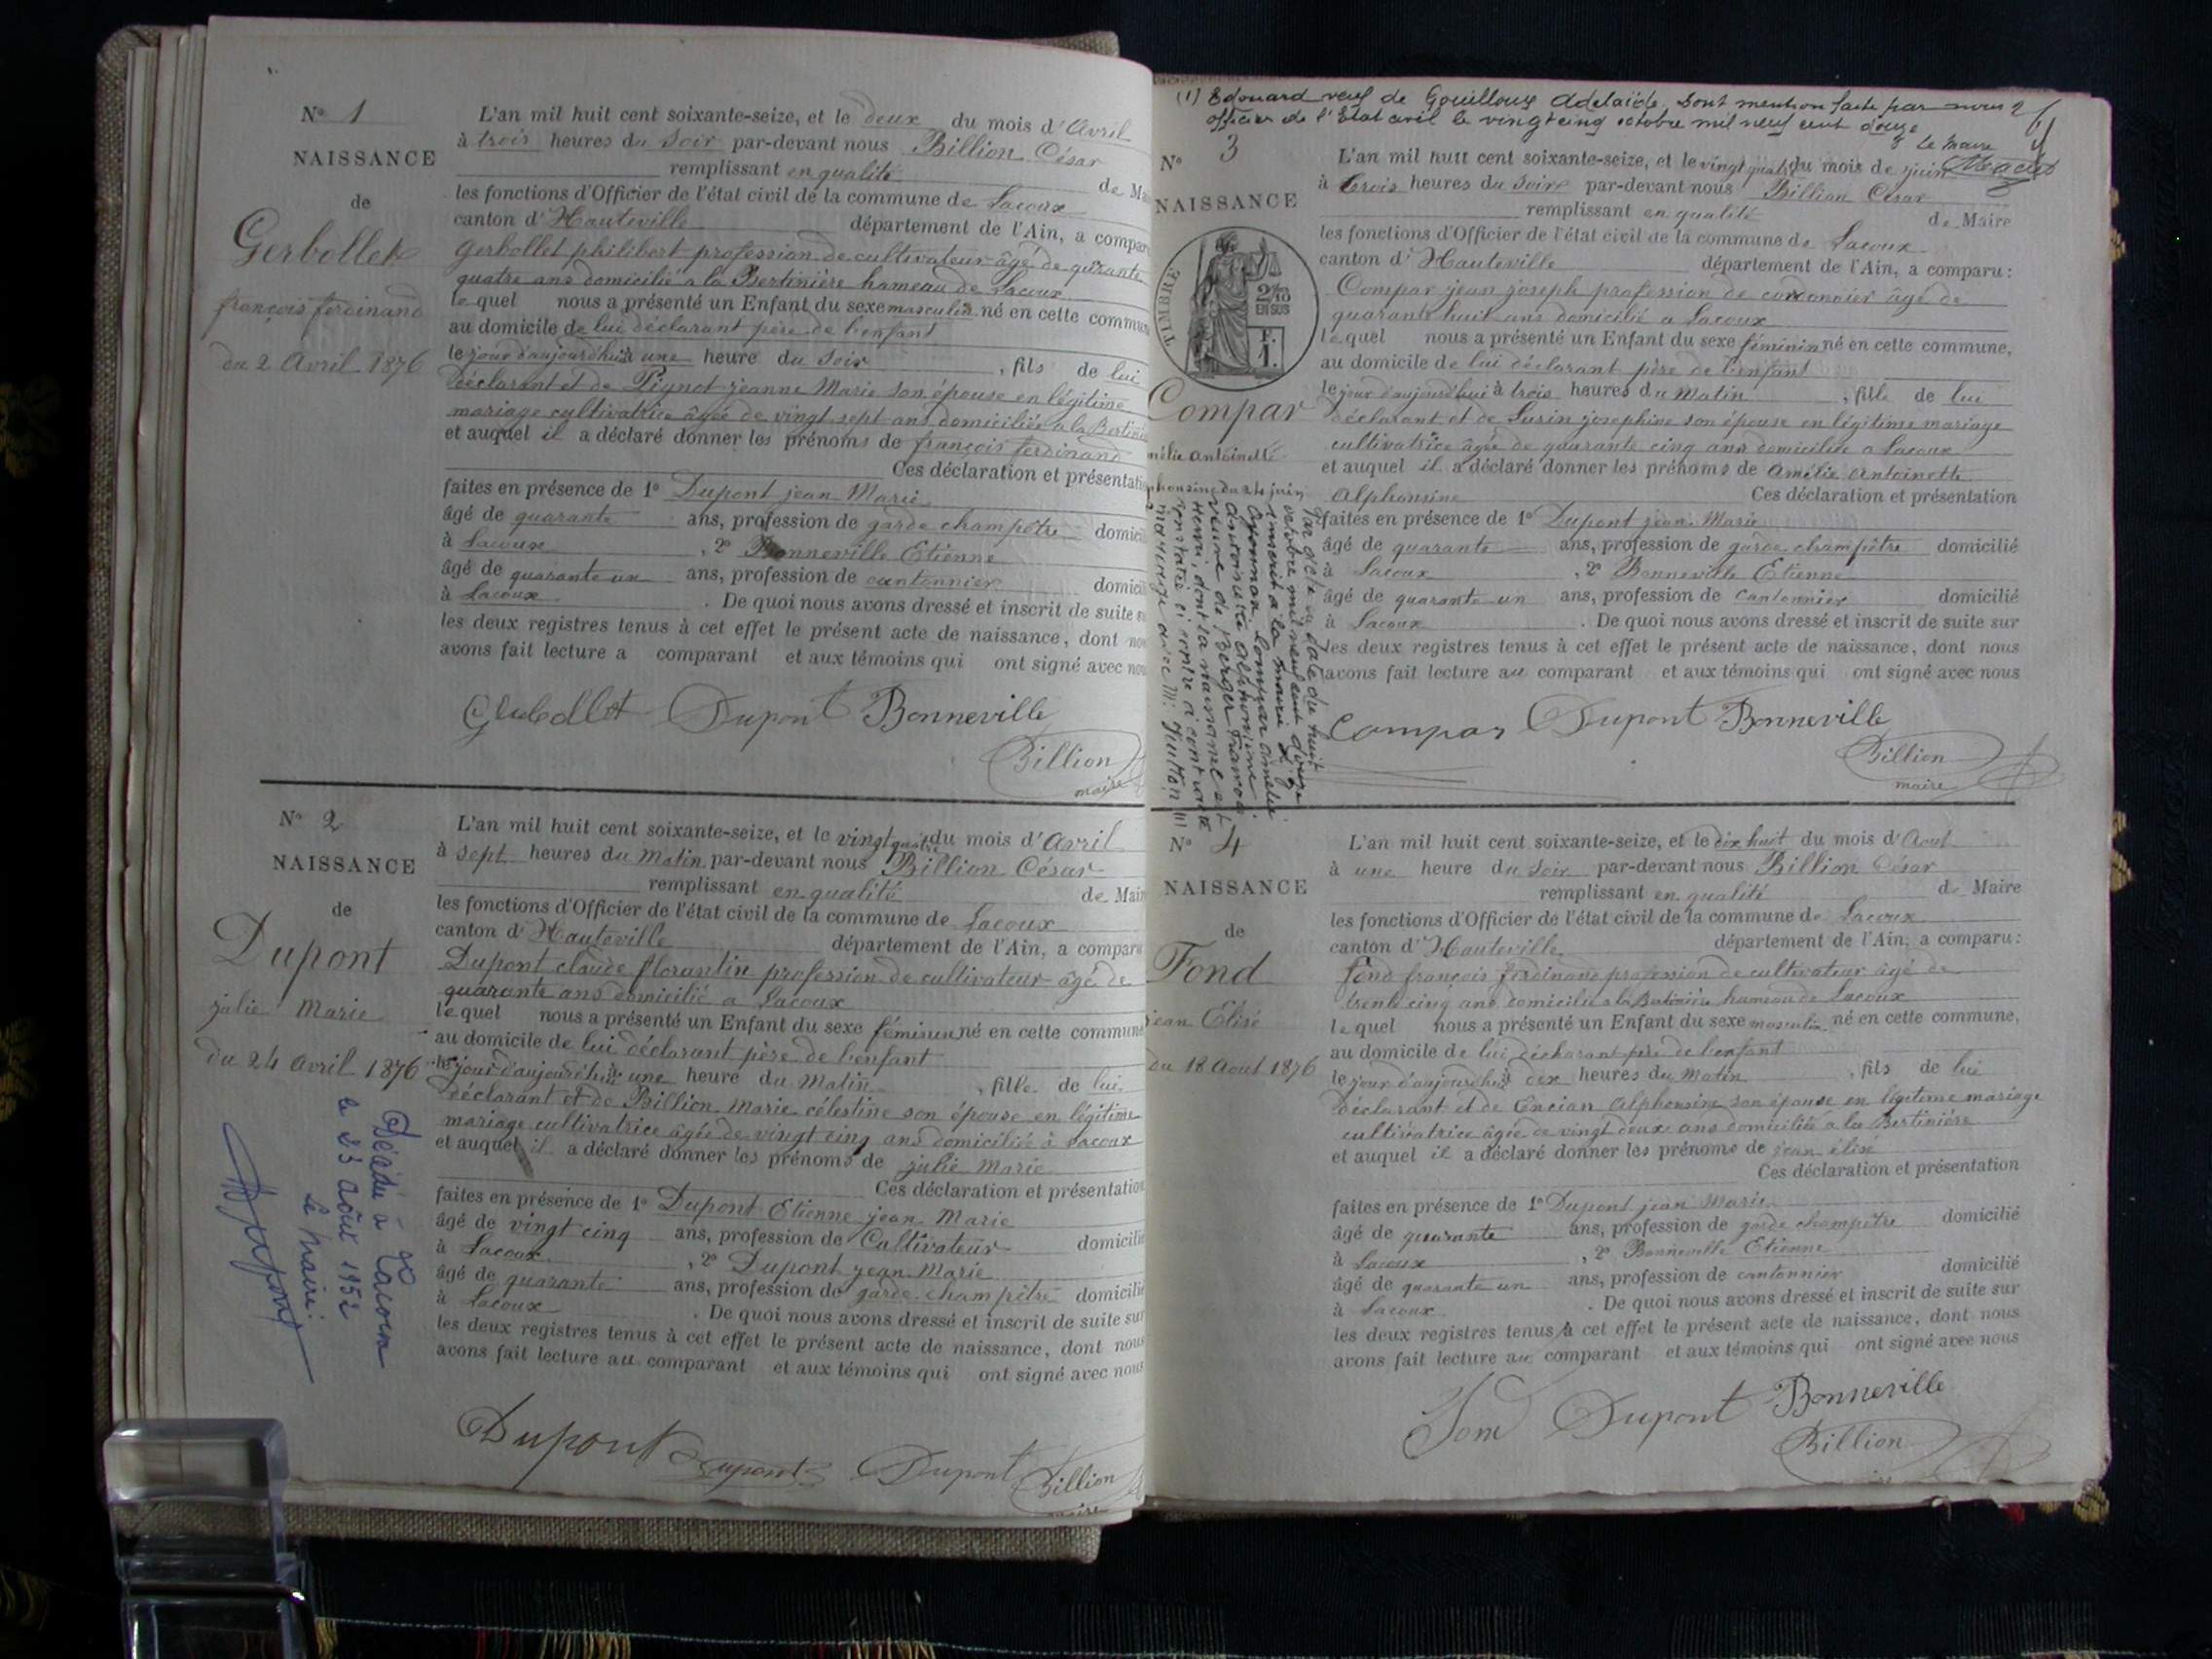 N° 1
NAISSANCE
de
Gerbollet
françois ferdinand
du 2 Avril 1876
L'an mil huit cent soixante-seize, et le deux du mois d'Avril
à trois heures du Soir par-devant nous Billion César
remplissant en qualité de Mai
les fonctions d'Officier de l'état civil de la commune de Lacoux
canton d'Hauteville département de l'Ain, a compar
Gerbollet philibert profession de cultivateur âgé de quarante
quatre ans domicilié a la Bertinière hameau de Lacoux
lequel nous a présenté un Enfant du sexe masculin né en cette commun
au domicile de lui déclarant père de l'enfant
le jour d'aujourd'hui à une heure du Soir, fils de lui
déclarant et de Pignot jeanne Marie son épouse en légitime
mariage cultivatrice âgée de vingt sept ans domiciliée a la Bertini
et auquel il a déclaré donner les prénoms de françois ferdinand
Ces déclaration et présentatio
faites en présence de 1° Dupont jean Marie
âgé de quarante ans, profession de garde champêtre domici
à Lacoux, 2° Bonneville Etienne
âgé de quarante un ans, profession de cantonnier domici
à Lacoux. De quoi nous avons dressé et inscrit de suite su
les deux registres tenus à cet effet le présent acte de naissance, dont no
avons fait lecture a comparant et aux témoins qui ont signé avec nou
Dupont Bonneville
Billion
maire
N° 2
NAISSANCE
de
Dupont
julie Marie
du 24 avril 1876
Décédée à Lacoux
le 23 août 1952
Le Maire
L'an mil huit cent soixante-seize, et le vingt quatre du mois d'Avril
à sept heures du Matin par-devant nous Billion César
remplissant en qualité de Mair
les fonctions d'Officier de l'état civil de la commune de Lacoux
canton d'Hauteville département de l'Ain, a comparu
Dupont claude florantin profession de cultivateur âgé de
quarante ans domicilié a Lacoux
lequel nous a présenté un Enfant du sexe féminin né en cette commune
au domicile de lui déclarant père de l'enfant
le jour d'aujourd'hui à une heure du Matin, fille de lui
déclarant et de Billion Marie célestine son épouse en légitime
mariage cultivatrice âgée de vingt cinq ans domiciliée à Lacoux
et auquel il a déclaré donner les prénoms de julie marie
Ces déclaration et présentation
faites en présence de 1° Dupont Etienne jean Marie
âgé de vingt cinq ans, profession de Cultivateur domicilié
à Lacoux, 2° Dupont jean Marie
âgé de quarante ans, profession de garde champêtre domicilié
à Lacoux. De quoi nous avons dressé et inscrit de suite sur
les deux registres tenus à cet effet le présent acte de naissance, dont nous
avons fait lecture au comparant et aux témoins qui ont signé avec nous
Dupont Dupont Dupont Billion
maire
(1) Edouard veuf de Gouilloux Adelaïde. Dont mention faite par nous
officier de l'Etat civil le vingt cinq octobre mil neuf cent douze
Le Maire
N° 3
NAISSANCE
TIMBRE
2/10
EN SUS
F.
1.
Compar
mélie antoinette
phonsine du 24 juin
Par acte en date du huit
octobre mil neuf cent douze
inscrit à la mairie d'
Oyonnax, Compar amélie
antoinette alphonsine
veuve de Berger François
Henri, dont la naissance est
constatée ci contre a contracté
mariage avec Mr (1)
L'an mil huit cent soixante-seize, et le vingt quatre du mois de juin
à trois heures du Soir par-devant nous Billion César
remplissant en qualité de Maire
les fonctions d'Officier de l'état civil de la commune de Lacoux
canton d'Hauteville département de l'Ain, a comparu :
Compar jean joseph profession de cordonnier âgé de
quarante huit ans domicilié a Lacoux
lequel nous a présenté un Enfant du sexe féminin né en cette commune,
au domicile de lui déclarant père de l'enfant
le jour d'aujourd'hui à trois heures du Matin, fille de lui
déclarant et de Surin josephine son épouse en légitime mariage
cultivatrice âgée de quarante cinq ans domiciliée a Lacoux
et auquel il a déclaré donner les prénoms de Amélie Antoinette
Alphonsine Ces déclaration et présentation
faites en présence de 1° Dupont jean Marie
âgé de quarante ans, profession de garde champêtre domicilié
à Lacoux, 2° Bonneville Etienne
âgé de quarante un ans, profession de Cantonnier domicilié
à Lacoux. De quoi nous avons dressé et inscrit de suite sur
les deux registres tenus à cet effet le présent acte de naissance, dont nous
avons fait lecture au comparant et aux témoins qui ont signé avec nous
Compar Dupont Bonneville
Billion
maire
N° 4
NAISSANCE
de
Fond
jean Elisé
du 18 Aout 1876
L'an mil huit cent soixante-seize, et le dix huit du mois d'Aout
à une heure du Soir par-devant nous Billion César
remplissant en qualité de Maire
les fonctions d'Officier de l'état civil de la commune de Lacoux
canton d'Hauteville département de l'Ain, a comparu :
fond françois ferdinand profession de cultivateur âgé de
trente cinq ans domicilié a la Bertinière hameau de Lacoux
lequel nous a présenté un Enfant du sexe masculin né en cette commune,
au domicile de lui déclarant père de l'enfant
le jour d'aujourd'hui à dix heures du Matin, fils de lui
déclarant et de Encian Alphonsine son épouse en légitime mariage
cultivatrice âgée de vingt deux ans domiciliée a la Bertinière
et auquel il a déclaré donner les prénoms de jean élisé
Ces déclaration et présentation
faites en présence de 1° Dupont jean Marie
âgé de quarante ans, profession de garde champêtre domicilié
à Lacoux, 2° Bonneville Etienne
âgé de quarante un ans, profession de cantonnier domicilié
à Lacoux. De quoi nous avons dressé et inscrit de suite sur
les deux registres tenus à cet effet le présent acte de naissance, dont nous
avons fait lecture au comparant et aux témoins qui ont signé avec nous
Fond Dupont Bonneville
Billion